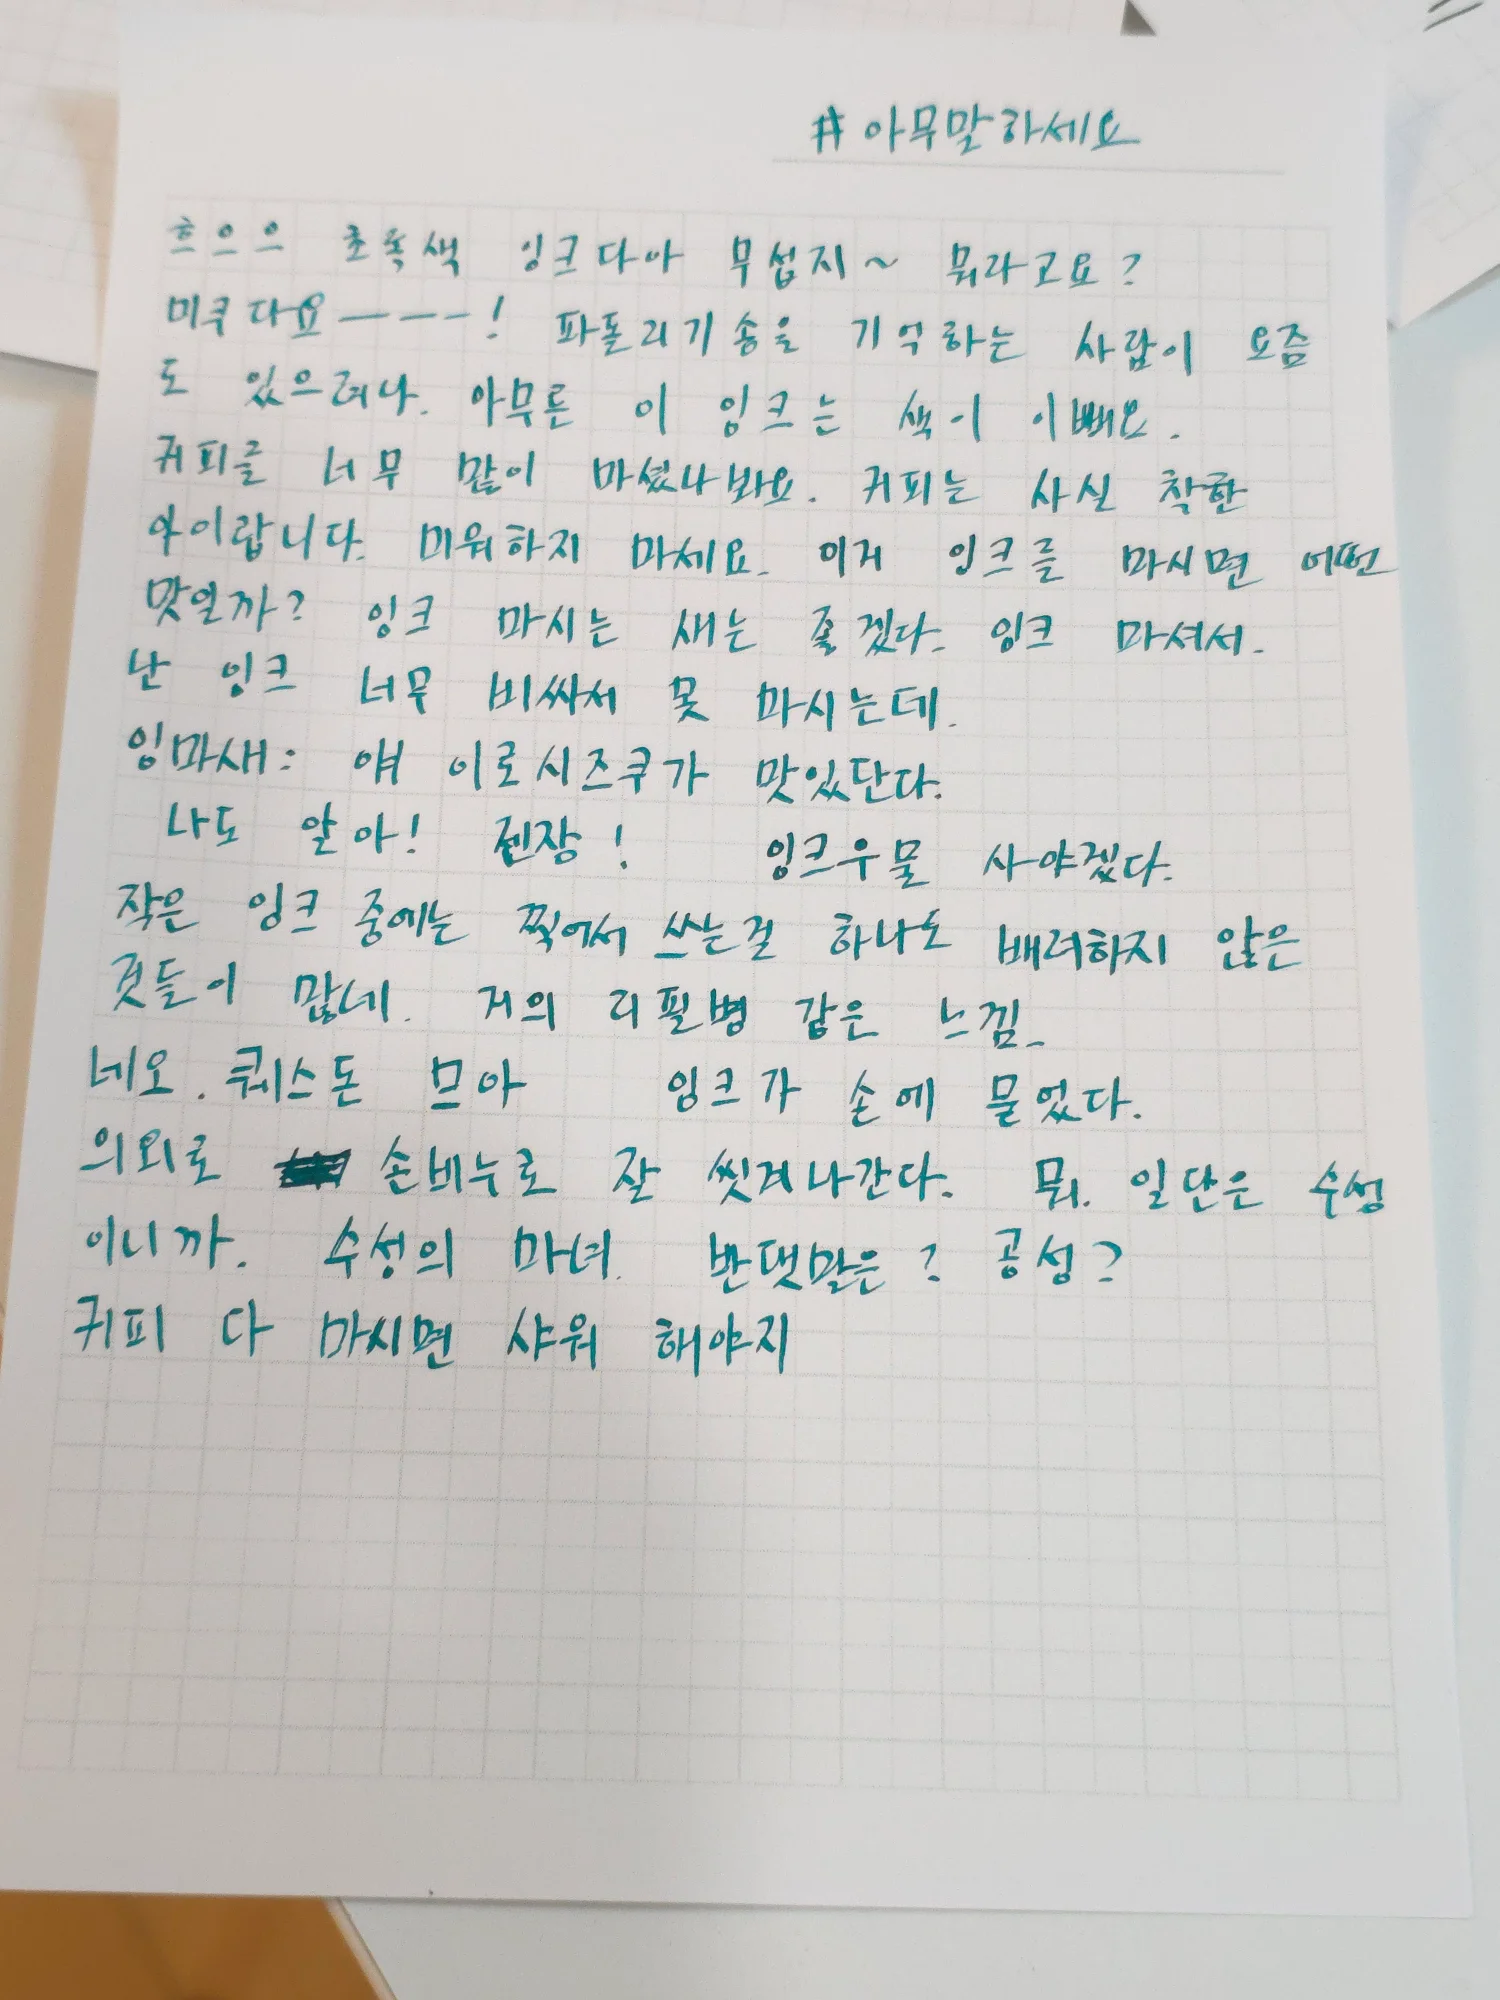 #아무말하세요
흐으으 초록색 잉크다아 무섭지~ 뭐라고요?
미쿠다요———! 파돌리기송을 기억하는 사람이 요즘
도 있으려나. 아무튼 이 잉크는 색이 이뻐요.
커피를 너무 많이 마셨나봐요. 커피는 사실 착한
아이랍니다. 미워하지 마세요. 이거 잉크를 마시면 어떤
맛일까? 잉크 마시는 새는 좋겠다. 잉크 마셔서.
난 잉크 너무 비싸서 못 마시는데.
잉마새: 얘 이로시즈쿠가 맛있단다.
나도 알아! 젠장! 잉크우물 사야겠다.
작은 잉크 중에는 찍어서 쓰는걸 하나도 배려하지 않은
것들이 많네. 거의 리필병 같은 느낌.
네오.퀘스돈 므아 잉크가 손에 묻었다.
의외로 손비누로 잘 씻겨나간다. 뭐. 일단은 수성
이니까. 수성의 마녀. 반댓말은? 공성?
커피 다 마시면 샤워 해야지